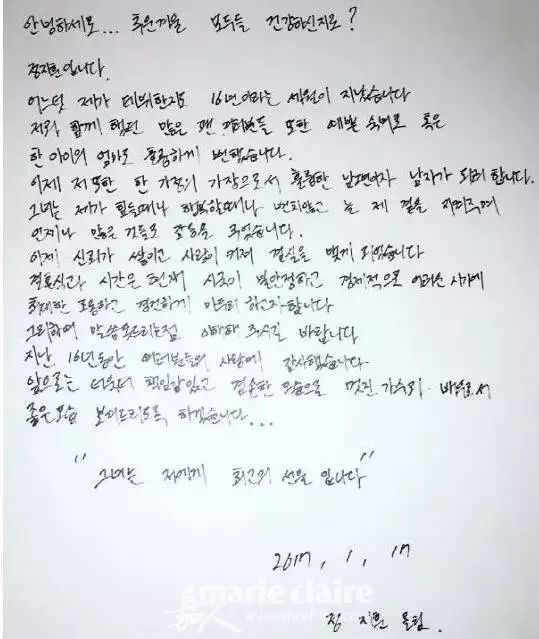 안녕하세요... 추운겨울 모두들 건강하신지요?
정지훈입니다.
어느덧 제가 데뷔한지도 16년이라는 세월이 지났습니다
저와 함께 했던 많은 팬 여러분들 또한 예쁜 숙녀로 혹은
한 아이의 엄마로 훌륭하게 변했습니다.
이제 저 또한 한 가정의 가장으로서 훌륭한 남편이자 남자가 되려 합니다.
그녀는 제가 힘들때나 행복할때나 변치않고 늘 제 곁을 지켜주며
언제나 많은 것들로 감동을 주었습니다.
이제 신뢰가 쌓이고 사랑이 커져 결실을 맺게 되었습니다
결혼식과 시간은 현재 시국이 불안정하고 경제적으로 어려운 시기에
최대한 조용하고 경건하게 마무리 하고자합니다
그리하여 말씀못드리는점 이해해 주시길 바랍니다
지난 16년동안 여러분들의 사랑에 감사했습니다
앞으로는 더욱더 책임감있고 겸손한 모습으로 멋진 가수와 배우로서
좋은모습 보여드리도록 하겠습니다...
"그녀는 저에게 최고의 선물 입니다"
2017, 1, 17
정 지훈 올림
marie claire